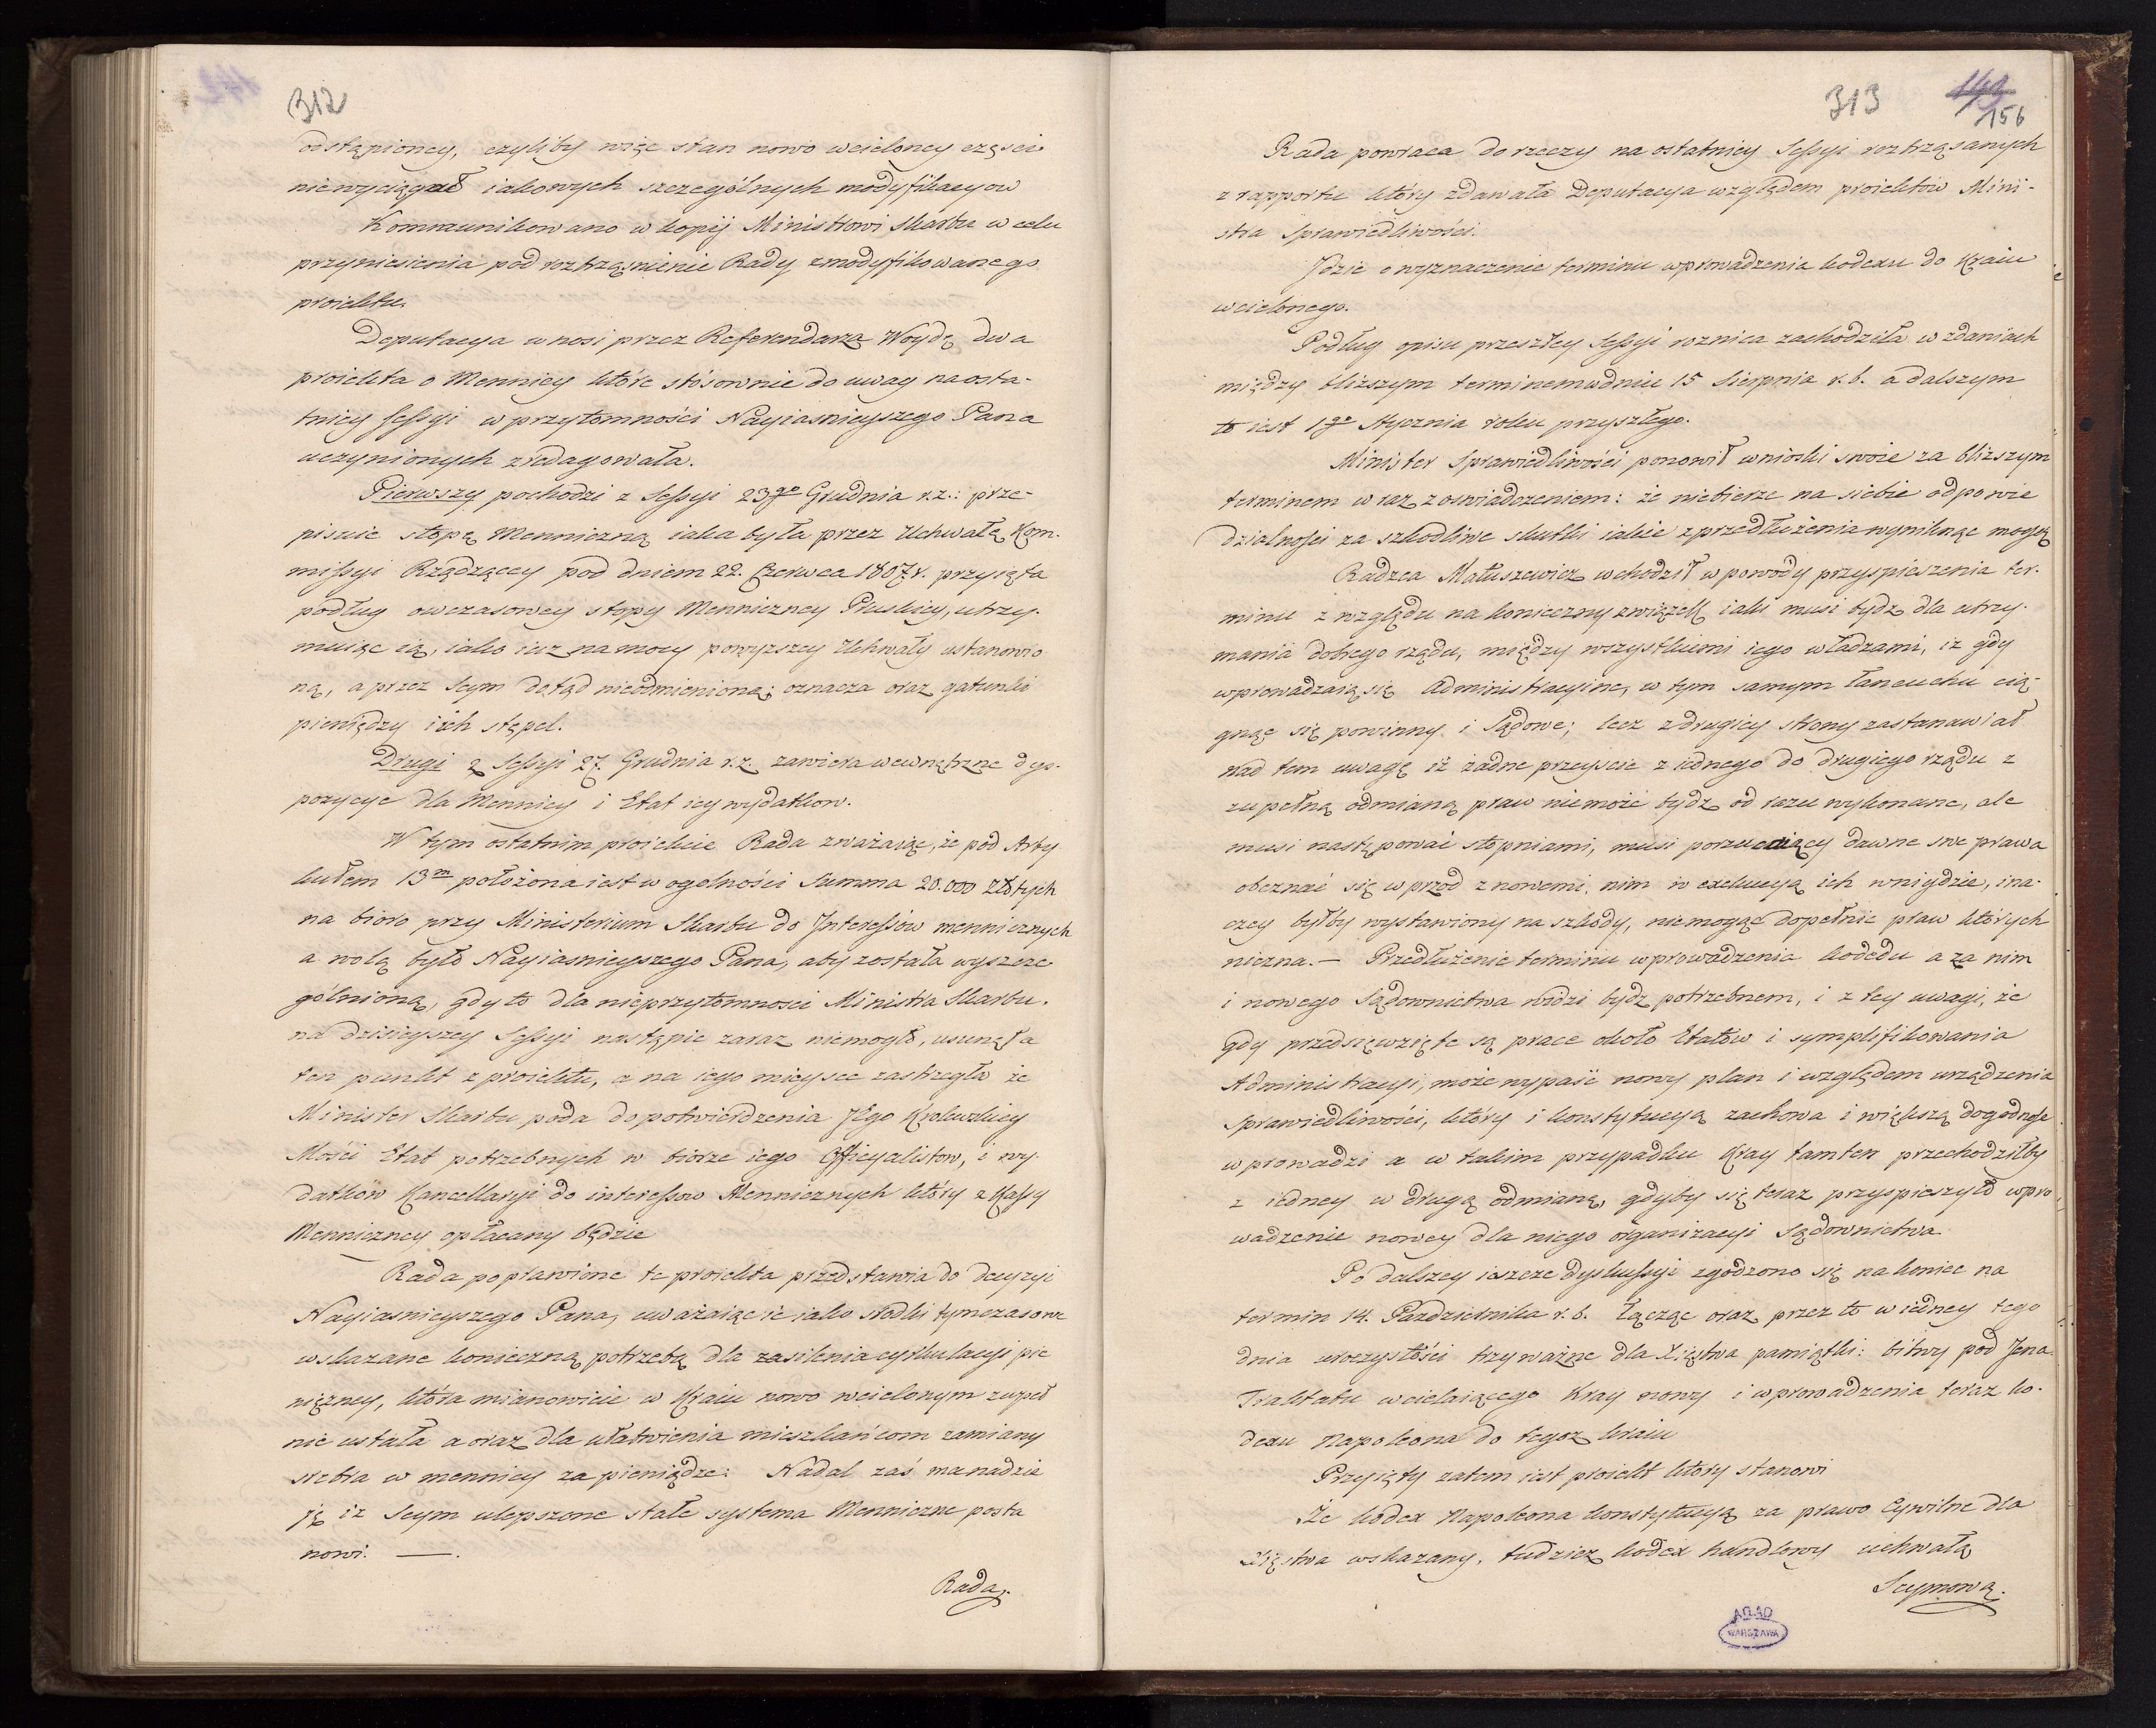 312
odstąpioney, czyliby więc stan nowo wcieloney części
niewyciągał iakowych szczególnych modyfikacyow
Kommunikowano w kopij Ministrowi Skarbu w celu
przyniesienia pod roztrząśnienie Rady zmodyfikowanego
proiektu.
Deputacya wnosi przez Referendarza Woydę dwa
proiekta o Mennicy które stósownie do uwag na osta-
tniey Sessyi w przytomności Nayiasnieyszego Pana
uczynionych zredagowała.
Pierwszy pochodzi z Sessyi 23go Grudnia r.z.: prze-
pisuie stopę Menniczną iaka była przez Uchwałę Kom-
missyi Rządzącey pod dniem 22. Czerwca 1807. r. przyięta
podług owczasowey stopy Menniczney Pruskiey, utrzy-
muiąc ią, iako iuż na mocy powyższey Uchwały ustanowio
ną, a przez Seym dotąd nieodmienioną; oznacza oraz gatunki
pieniędzy i ich stępel.
Drugi z Sessyi 27. Grudnia r.z. zawiera wewnętrzne dys-
pozycye dla Mennicy i Etat iey wydatkow.
W tym ostatnim proiekcie Rada zważaiąc, że pod Arty
kułem 13m położona iest w ogolności Summa 20.000 Złotych
na bioro przy Ministerium Skarbu do Interessów mennicznych
a wolą było Nayiasnieyszego Pana, aby została wyszcze
gólnioną, gdy to dla nieprzytomności Ministra Skarbu.
na dzisieyszey Sessyi nastąpic zaraz niemogło, usunęła
ten punkt z proiektu, a na iego mieysce zastrzegła że
Minister Skarbu poda do potwierdzenia JEgo Krolewskiey
Mości Etat potrzebnych w biorze iego Officyalistow, i wy-
datkow Kancellaryi do interessow Mennicznych który z Kassy
Menniczney opłacany będzie
Rada poprawione te proiekta przedstawia do decyzyi
Nayiasnieyszego Pana, uważaiąc ie iako srodki tymczasowe
wskazane konieczną potrzebą dla zasilenia cyrkulacyi pie
niężney, która mianowicie w Kraiu nowo wcielonym zupeł
nie ustała a oraz dla ułatwienia mieszkańcom zamiany
srebra w mennicy za pieniądze: Nadal zaś ma nadzie
ję iż Seym ulepszone stałe systema Menniczne posta
nowi. —.
Rada.
313 149
156
Rada powraca do rzeczy na ostatniey Sessyi roztrząsanych
z rapportu który zdawała Deputacya względem proiektów Mini-
stra Sprawiedliwości.
Jdzie o wyznaczenie terminu wprowadzenia kodexu do Kraiu
wcielonego.
Podług opisu przeszłey Sessyi roznica zachodziła w zdaniach
między bliższym terminem w dniu 15 Sierpnia r.b. a dalszym
to iest 1go Stycznia roku przyszłego.
Minister Sprawiedliwości ponowił wnioski swoie za bliższym
terminem wraz z oswiadczeniem: że niebierze na siebie odpowie
dzialności za szkodliwe skutki iakie z przedłużenia wyniknąc mogą
Radzca Matuszewicz wchodził w powody przyspieszenia ter-
minu z względu na konieczny związek iaki musi bydz dla utrzy-
mania dobrego rządu, między wszystkiemi iego władzami, iż gdy
wprowadzaią się administracyine, w tym samym łancuchu cią-
gnąc się powinny i Sądowe; lecz z drugiey strony zastanawiał
nad tem uwagę iż żadne przeyscie z iednego do drugiego rządu z
zupełną odmianą praw niemoże bydz od razu wykonane, ale
musi następować stopniami, musi porzucaiący dawne swe prawa
obeznać się wprzod z nowemi, nim w exekucyą ich wniydzie, ina-
czey byłby wystawiony na szkody, niemogąc dopełnic praw których
niezna. — Przedłużenie terminu wprowadzenia kodedu a za nim
i nowego Sądownictwa widzi bydz potrzebnem, i z tey uwagi, że
gdy przedsięwzięte są prace około Etatów i symplifikowania
Administracyi, może wypaść nowy plan i względem urządzenia
Sprawiedliwości, który i konstytucyą zachowa i większą dogodność
wprowadzi a w takim przypadku Kray tamten przechodziłby
z iedney w drugą odmianę, gdyby się teraz przyspieszyło wpro
wadzenie nowey dla niego organizacyi Sądownictwa
Po dalszey ieszcze dyskussyi zgodzono się na koniec na
termin 14. Pazdziernika r.b. łącząc oraz przez to w iedney tego
dnia uroczystości trzy ważne dla Xięstwa pamiątki: bitwy pod Jena
Traktatu wcielaiącego Kray nowy i wprowadzenia teraz ko-
dexu Napoleona do tegoż kraiu
Przyięty zatem iest proiekt który stanowi
Że kodex Napoleona konstytucyą za prawo Cywilne dla
Xięstwa wskazany, tudzież kodex handlowy uchwałą
Seymową.
AGAD
WARSZAWA